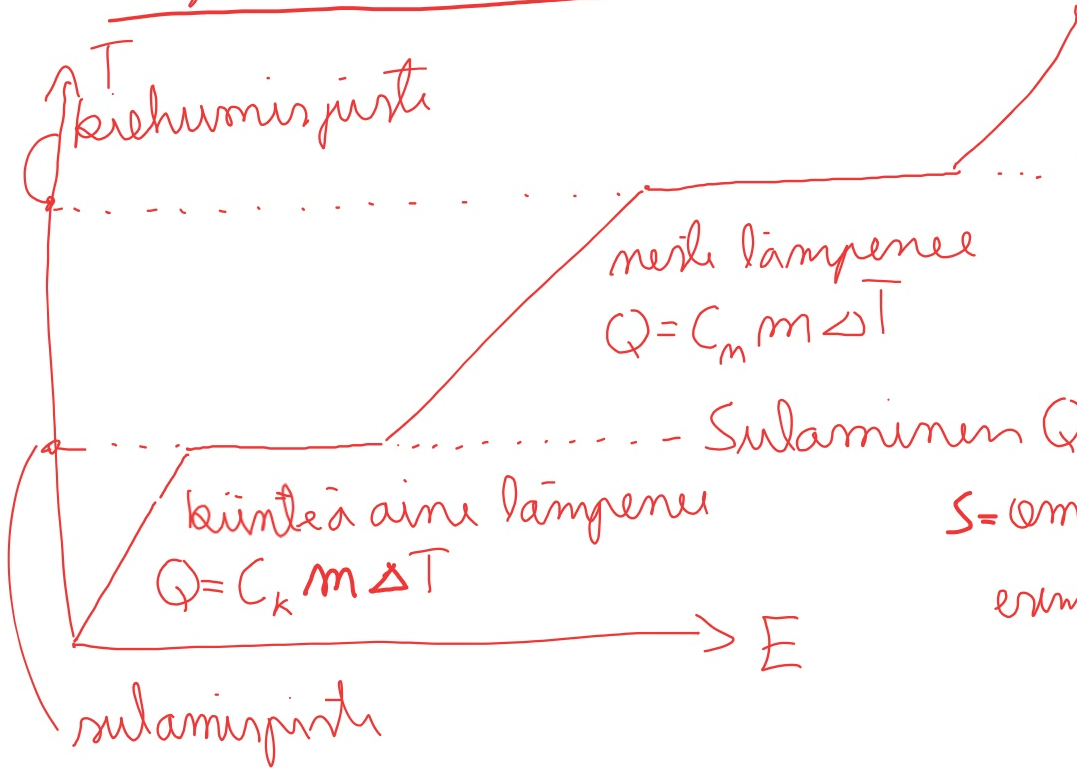 T
kiehumispiste
neste lämpenee
Q = Cₙ m ΔT
Sulaminen Q
kiinteä aine lämpenee
S = om
Q = Cₖ m ΔT
esim
E
sulamispiste